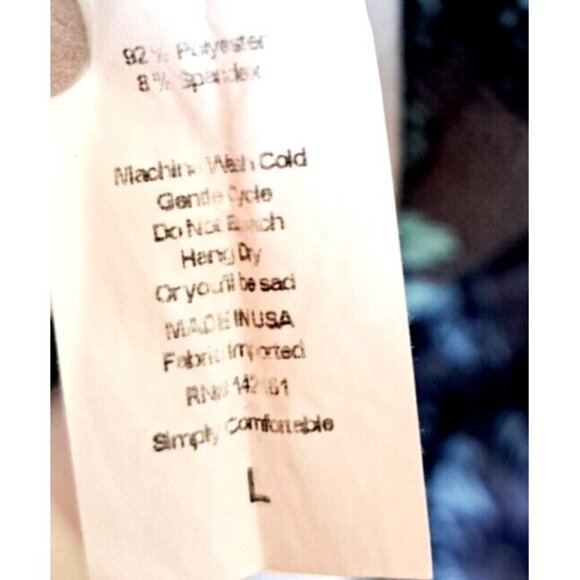 92% Polyester
8% Spandex
Machine Wash Cold
Gentle Cycle
Do Not Bleach
Hang Dry
Or you'll be sad
MADE IN USA
Fabric Imported
RN# 142161
Simply Comfortable
L